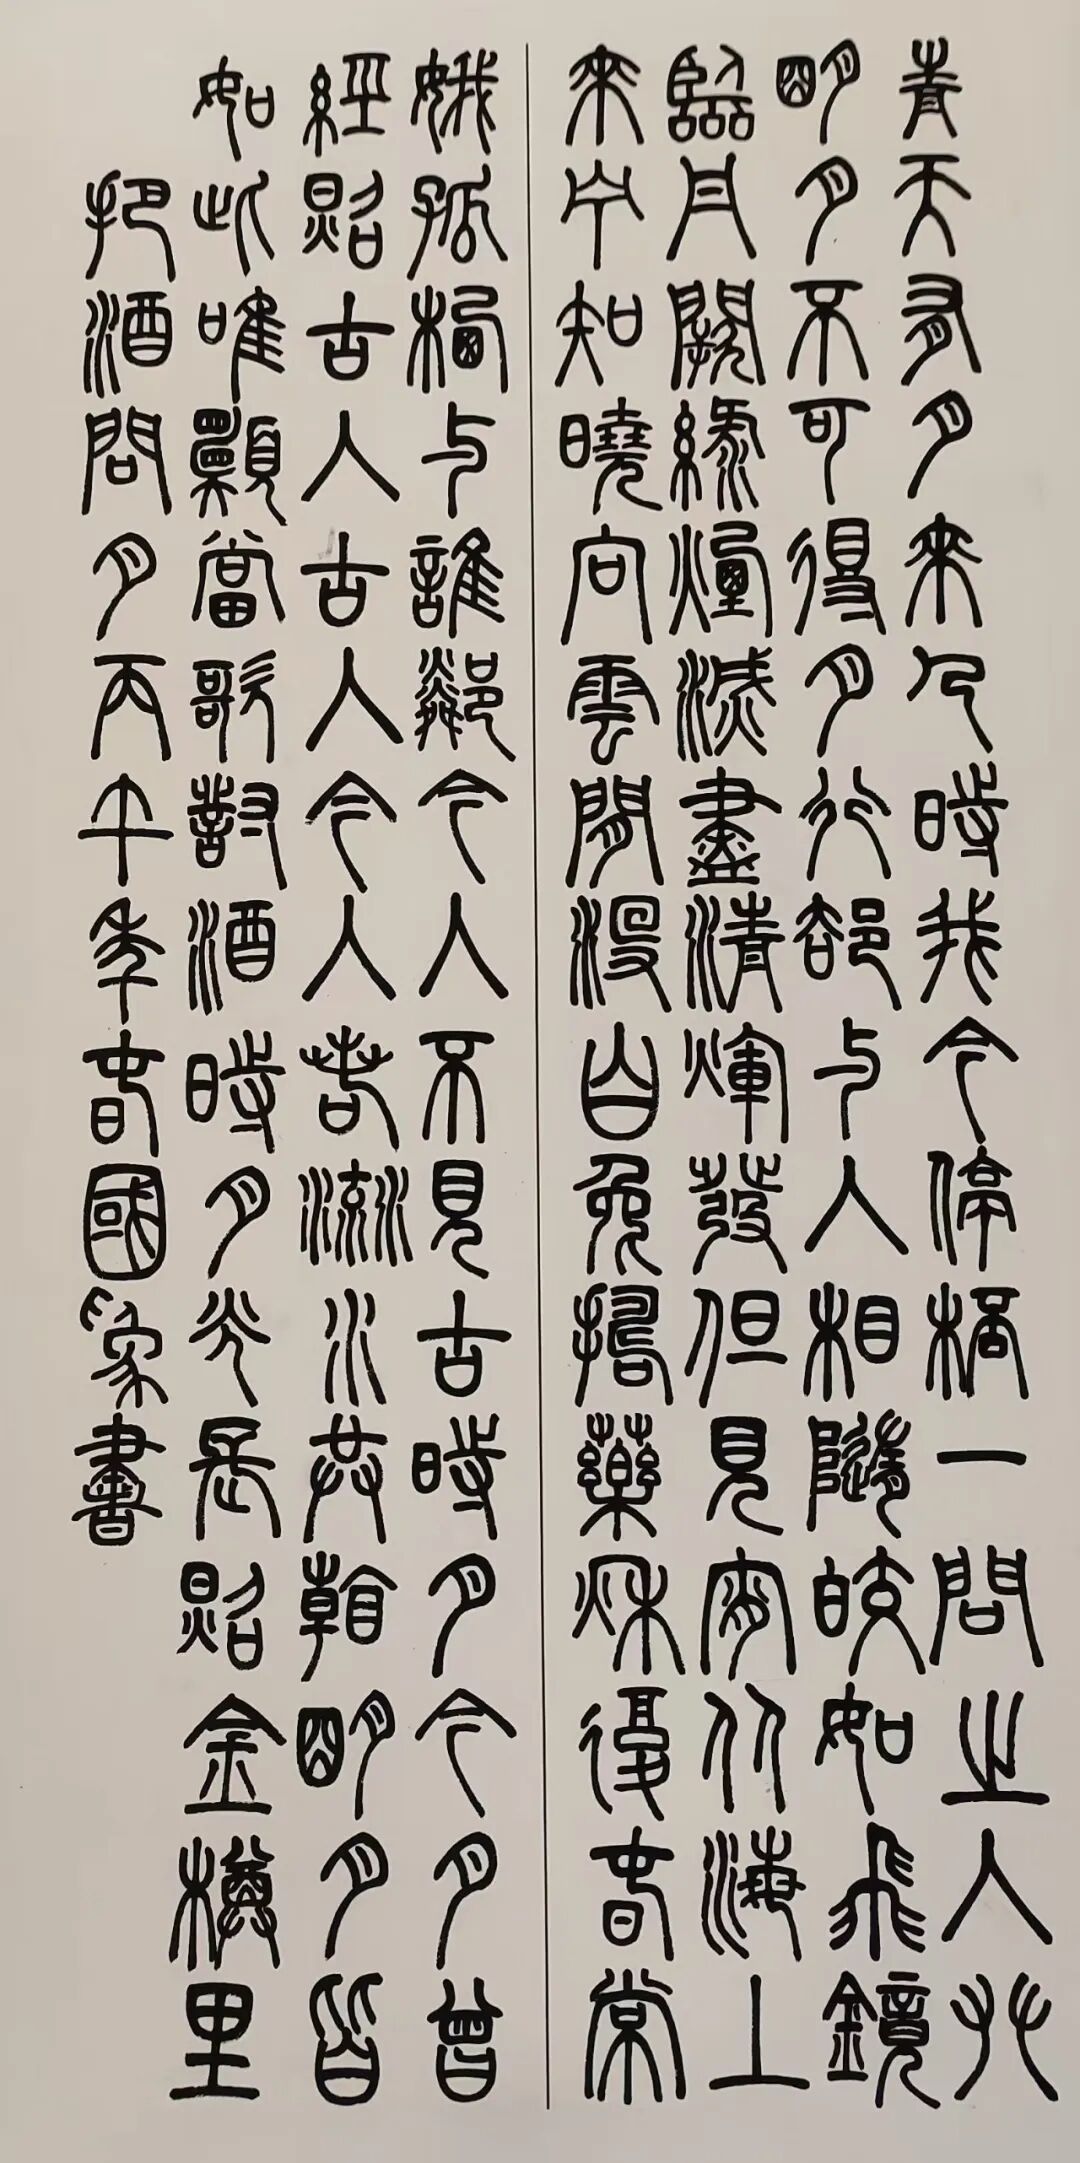 青天有月來几時我今停桮一問之人攀
明月不可得月行卻与人相隨皎如飛鏡
臨丹闕綠煙滅盡清輝發但見宵從海上
來寧知曉向雲間沒白兔擣藥秋復春常
娥孤棲与誰鄰今人不見古時月今月曾
經照古人古人今人若流水共看明月皆
如此唯願當歌對酒時月光長照金樽里
把酒問月丙午年春國象書